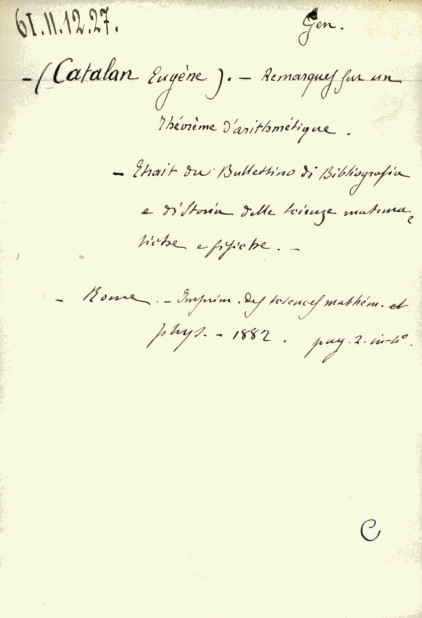 61.II.12.27.
Gen.
- (Catalan Eugène). - Remarques sur un
théorème d'arithmétique.
- Etrait du Bullettino di Bibliografia
e di Storia delle scienze matema=
tiche e fisiche. -
- Rome. - Imprim. des sciences mathém. et
phys. - 1882. pag. 2. in-4°.
C